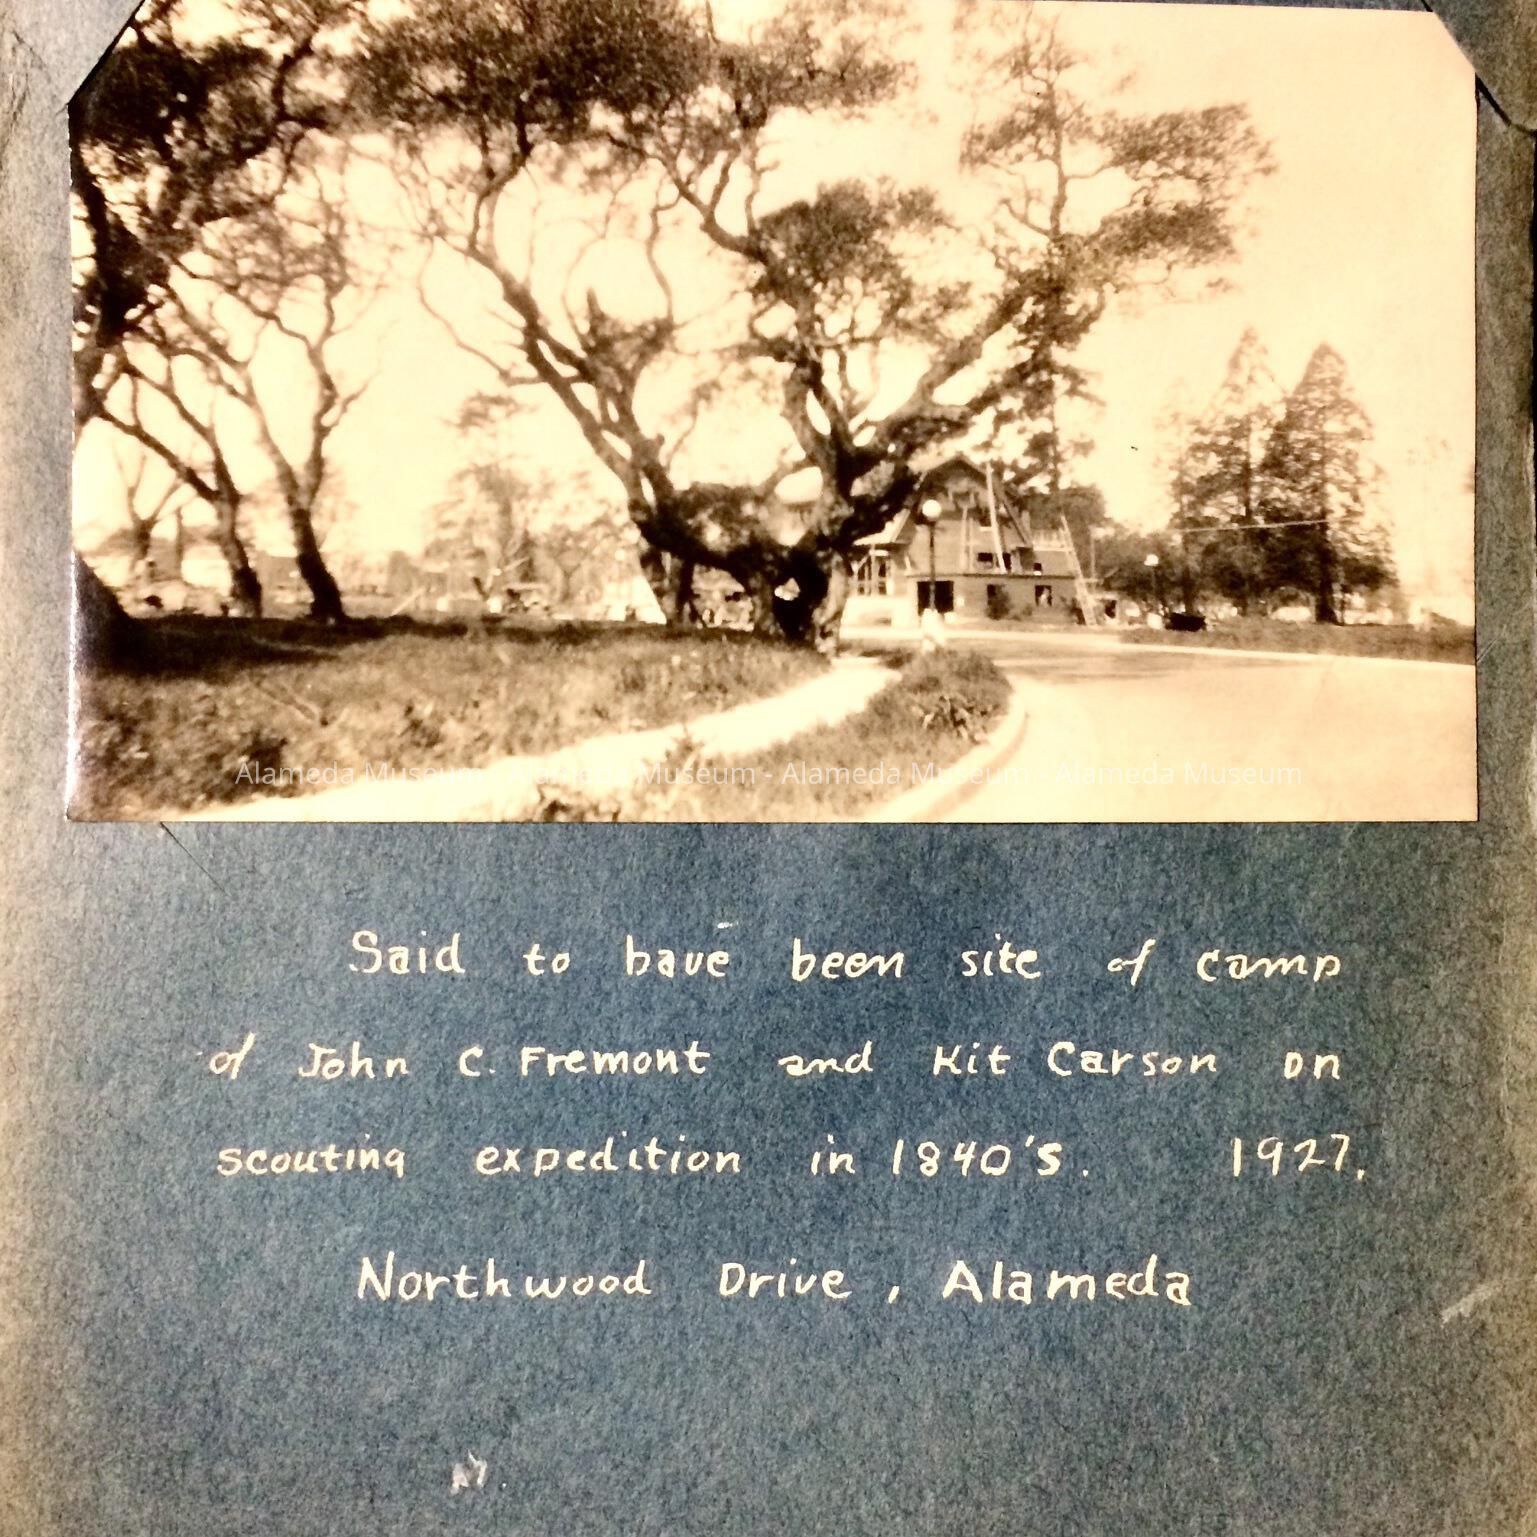 Alameda Museum - Alameda Museum - Alameda Museum - Alameda Museum
Said to have been site of camp
of John C. Fremont and Kit Carson on
scouting expedition in 1840's. 1927.
Northwood Drive, Alameda